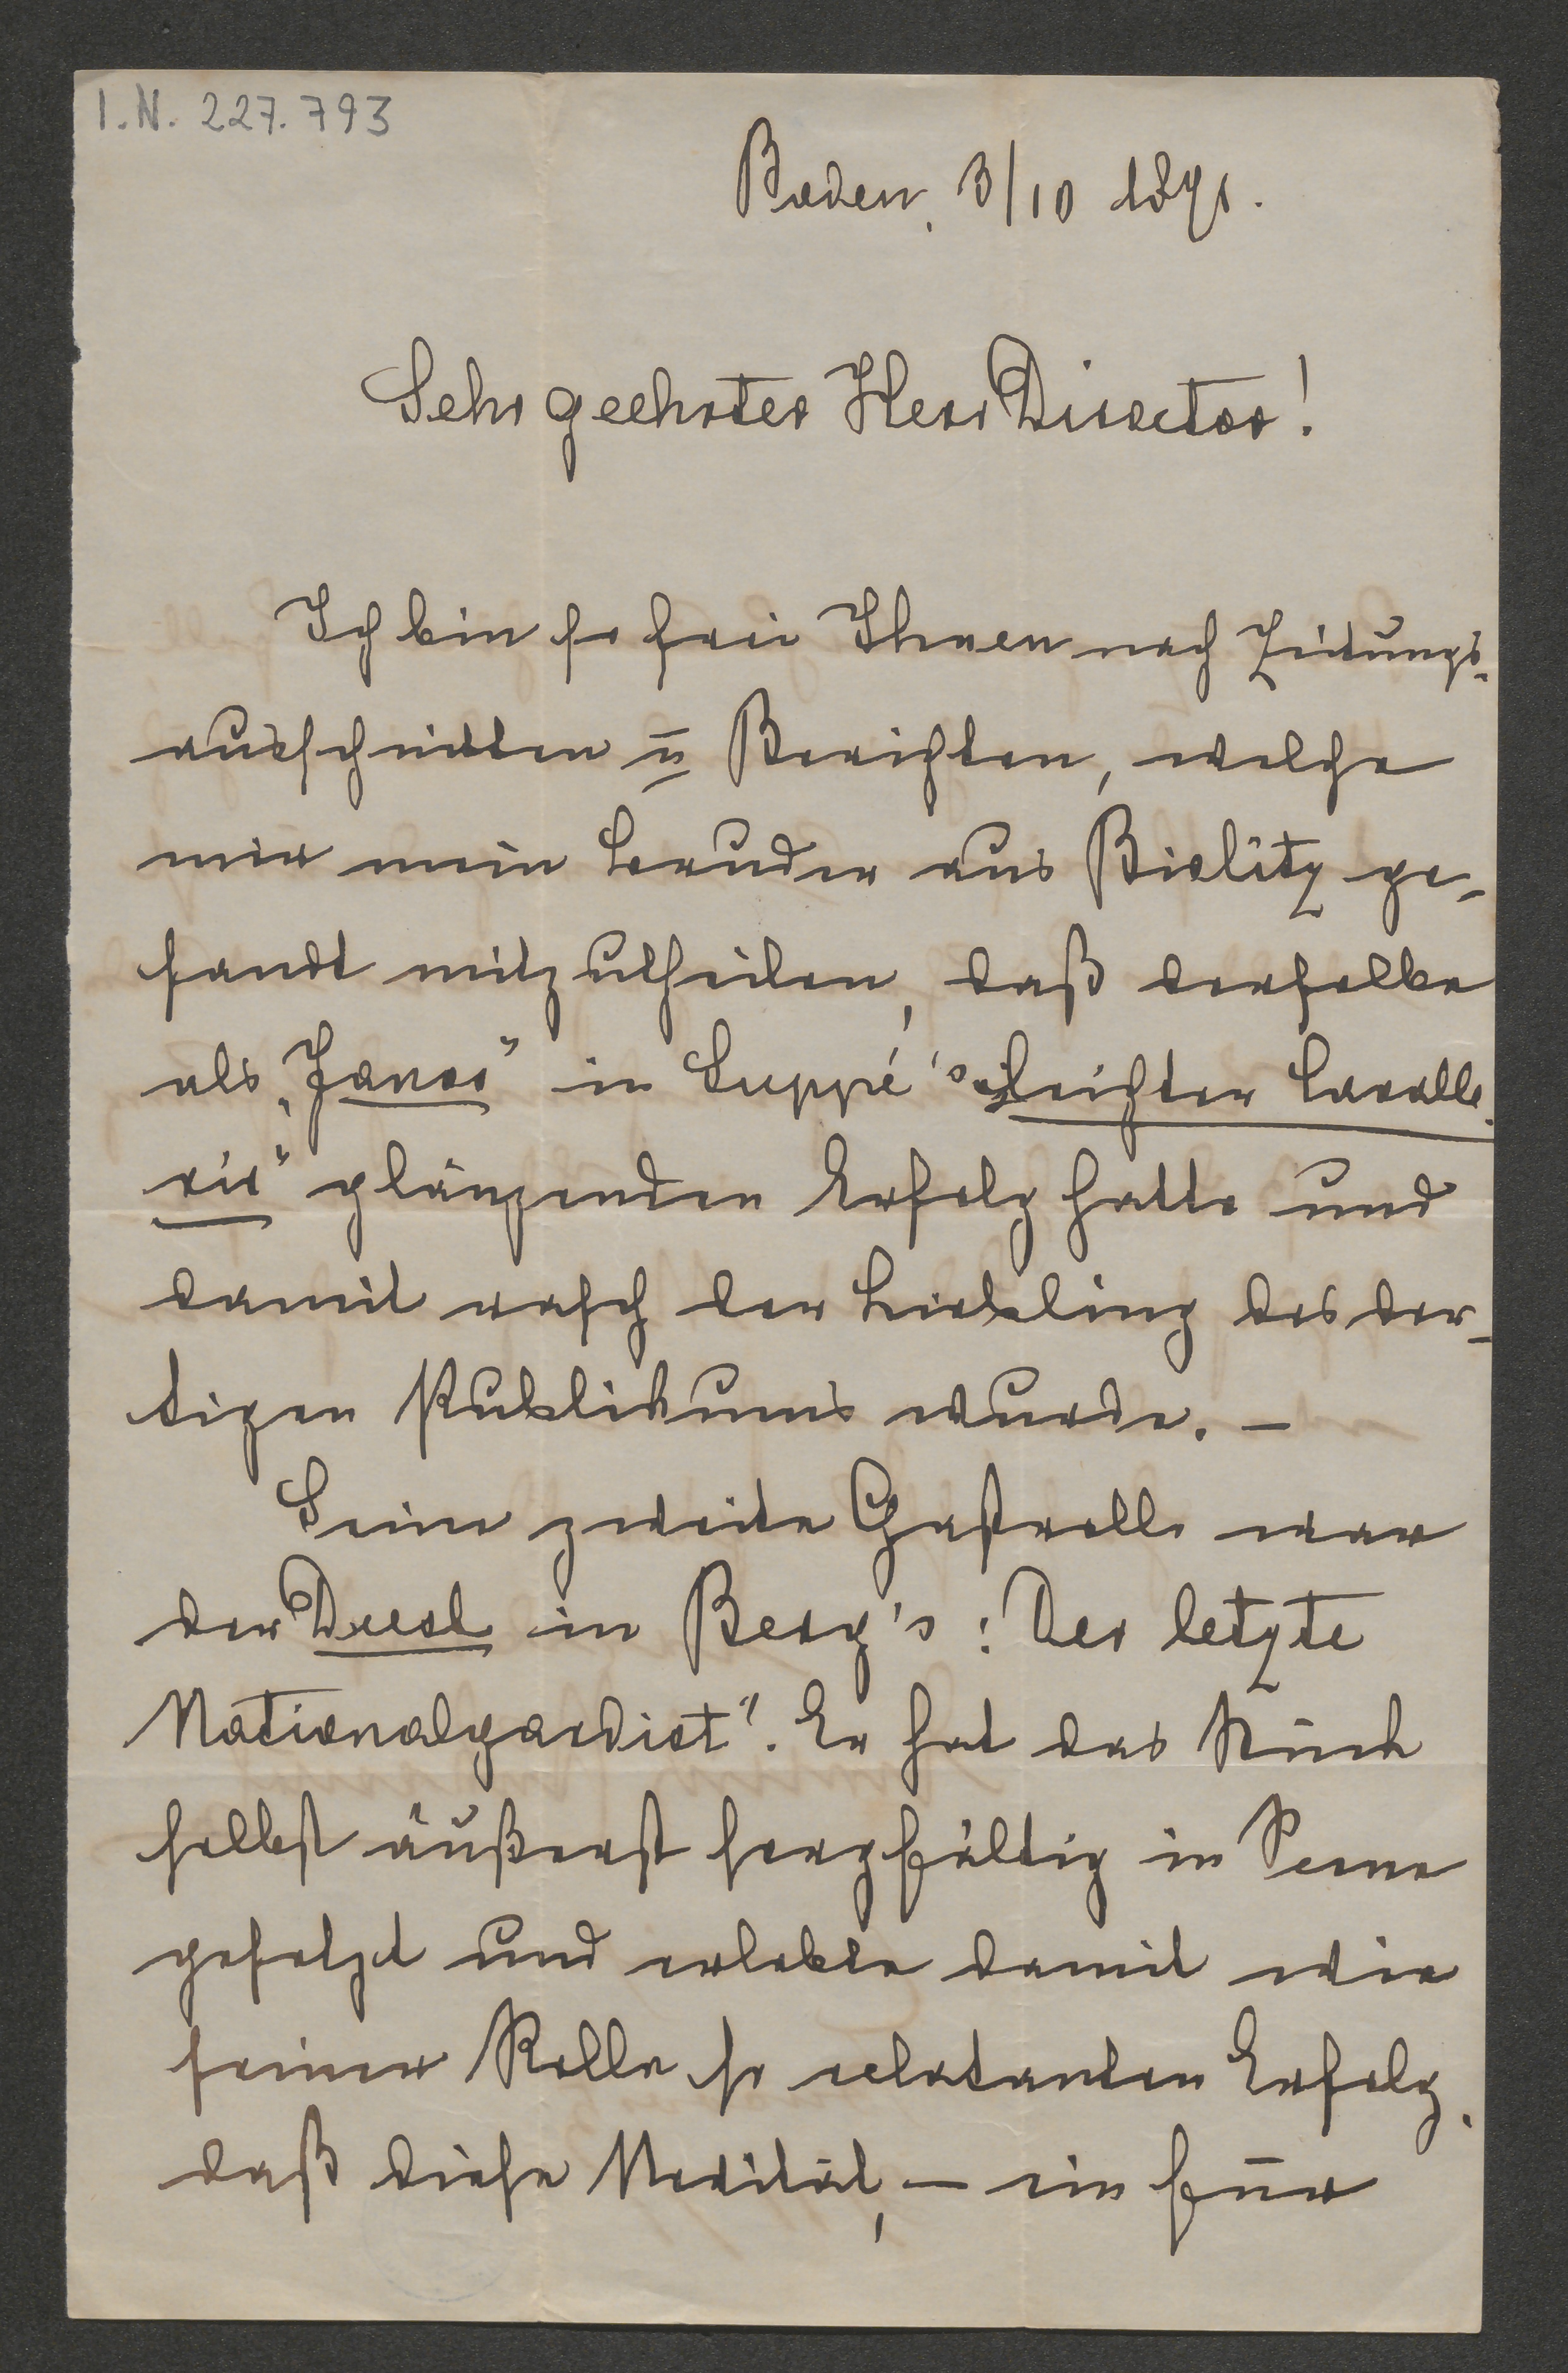 I.N. 227.793
Baden, 3/10 1891.
Sehr geehrter Herr Director!
Ich bin so frei Ihnen nach Zeitungs-
ausschnitten u Berichten, welche
mir mein Bruder aus Bielitz ge-
sandt mitzutheilen, daß derselbe
als „Janos" in Suppé's „Leichter Cavalle-
rie" glänzenden Erfolg hatte und
damit rasch der Liebling des dor-
tigen Publikums wurde. –
Seine zweite Gastrolle war
der in Berg's: Der letzte
Nationalgardist". Er hat das Stück
selbst äußerst sorgfältig in Scene
gesetzt und erlebte damit wie
seiner Rolle so eclatanten Erfolg,
daß diese Novität, – ein für